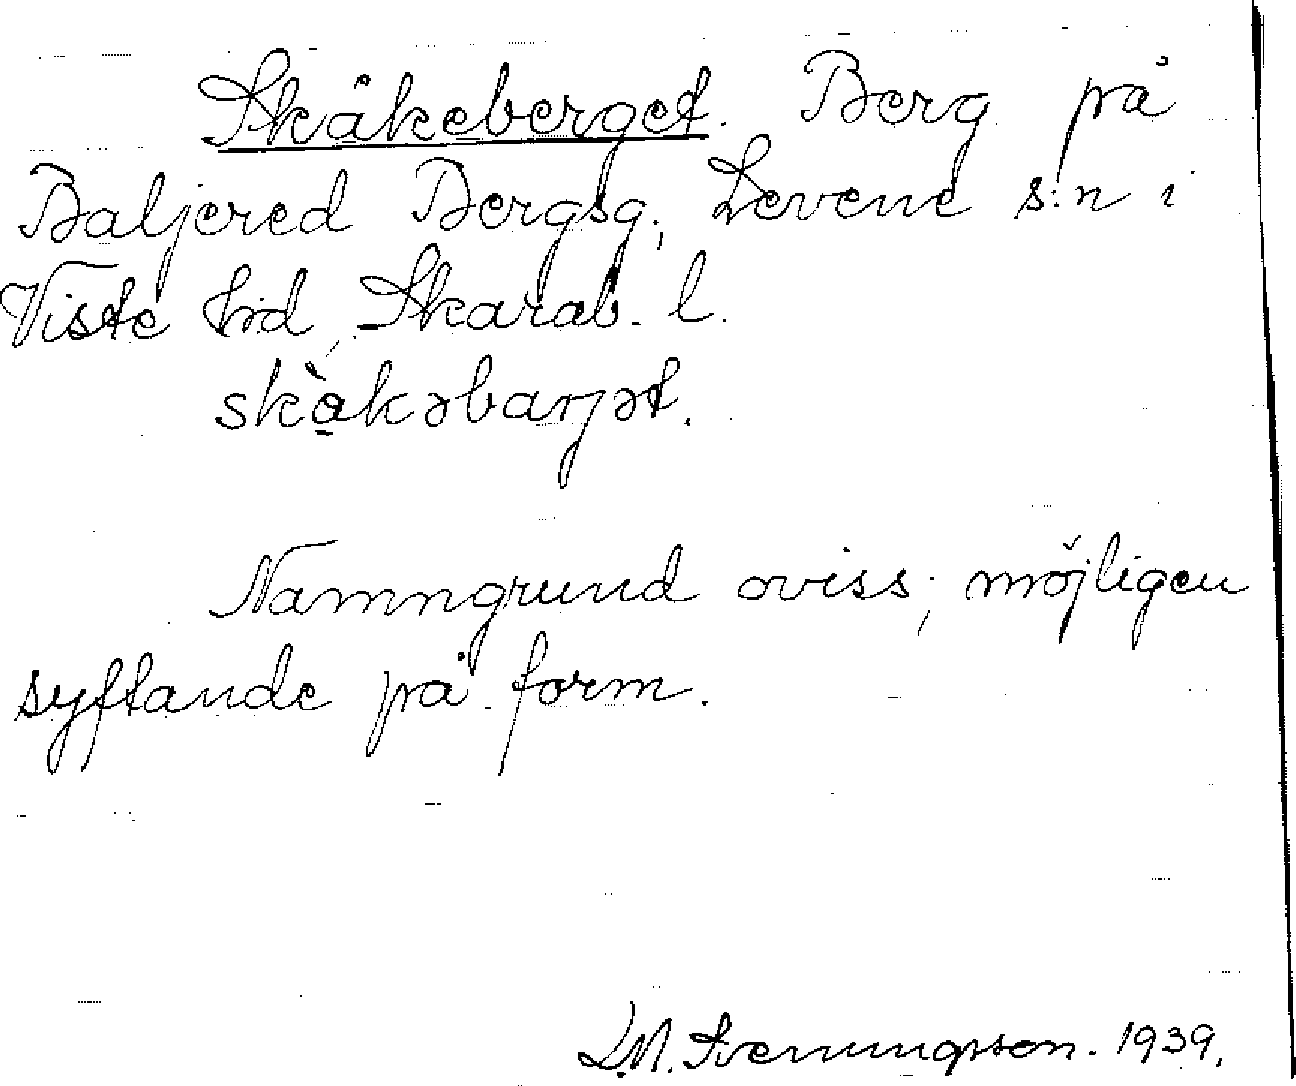 Skåkeberget. Berg på
Baljered Bergsg., Levene s:n i
Viste hd, Skarab. l.
skàkəbarjət.
Namngrund oviss; möjligen
syftande på form.
D.M. Svenungsson. 1939.